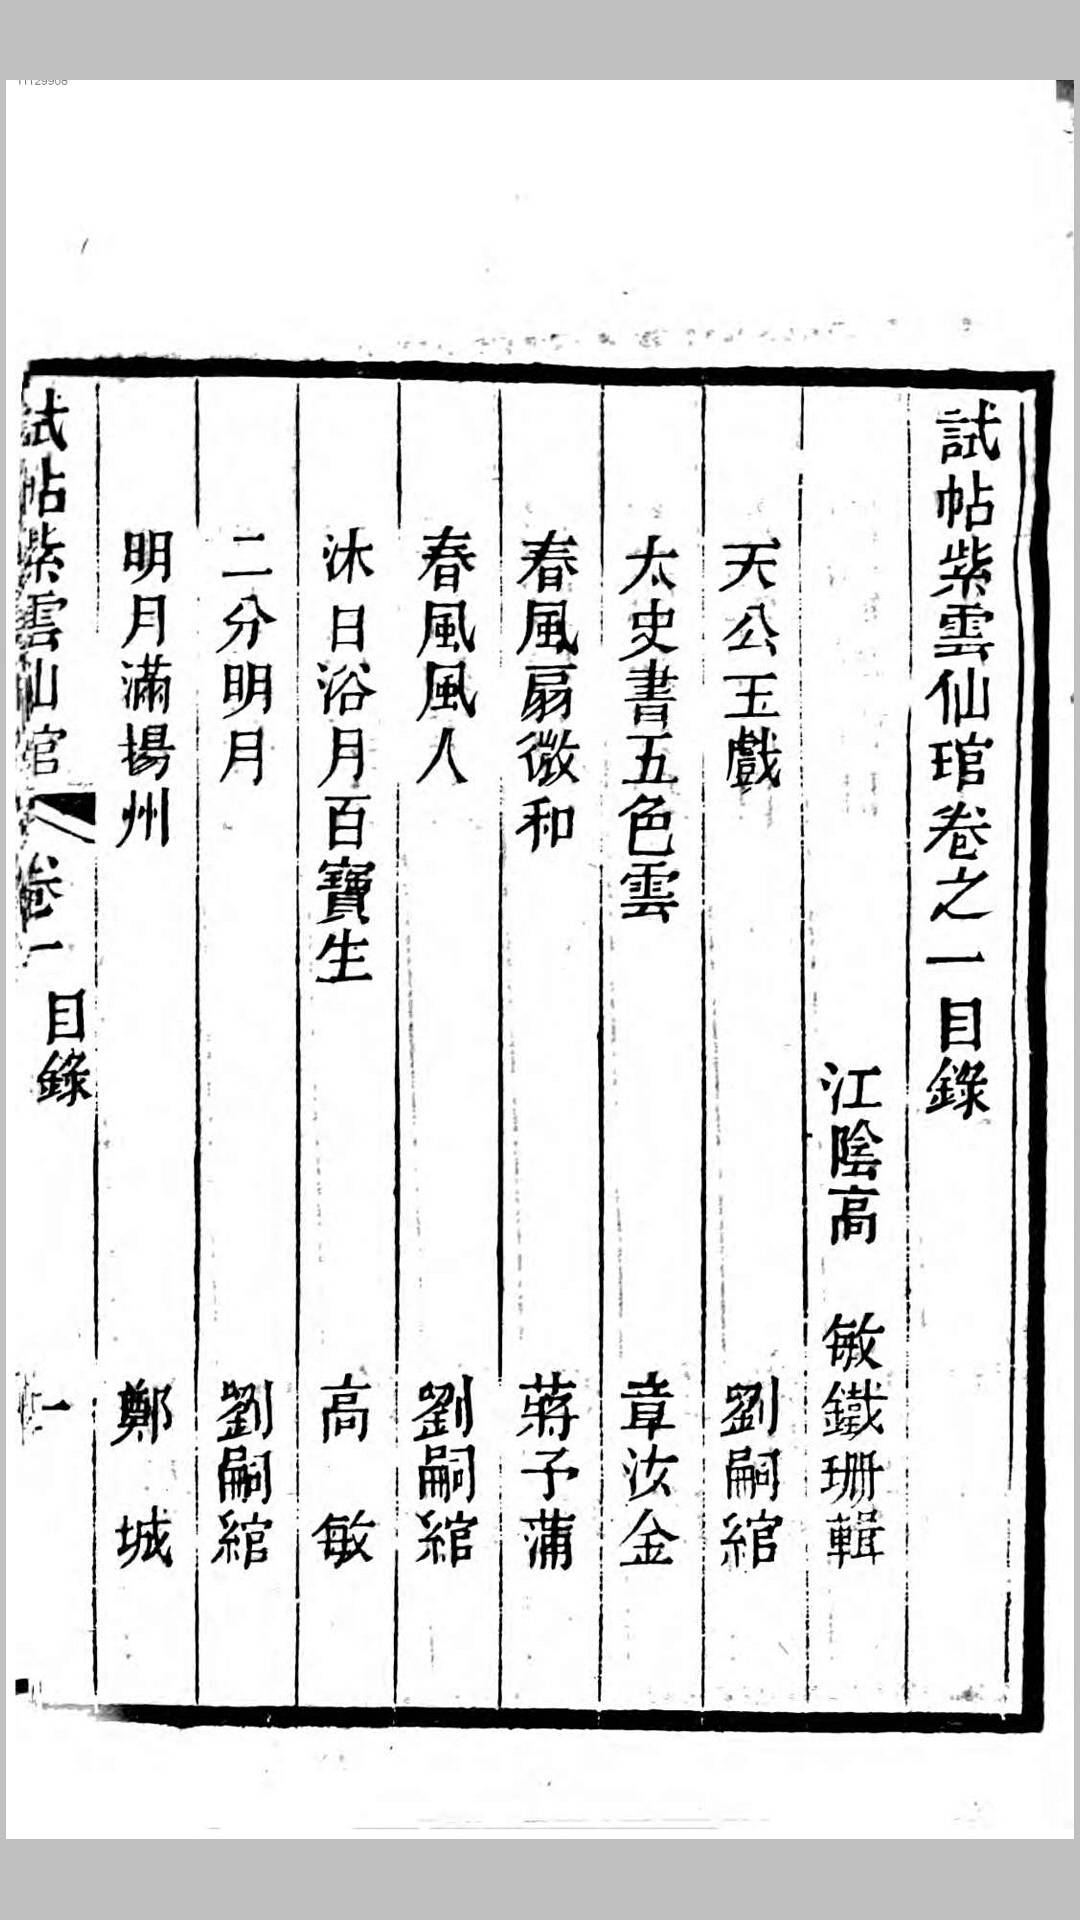 試帖紫雲仙琯卷之一目錄
江陰高　敏鐵珊輯
天公玉戲　劉嗣綰
太史書五色雲　章汝金
春風扇微和　蔣予蒲
春風風人　劉嗣綰
沐日浴月百寶生　高　敏
二分明月　劉嗣綰
明月滿揚州　鄭　城
試帖紫雲仙琯　卷一　目錄　一